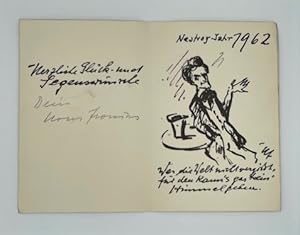 Herzliche Glück- und
Segenswünsche
Dein
Nestroy-Jahr 1962
Wer die Welt nicht
für den kann's gar kein
Himmel geben.